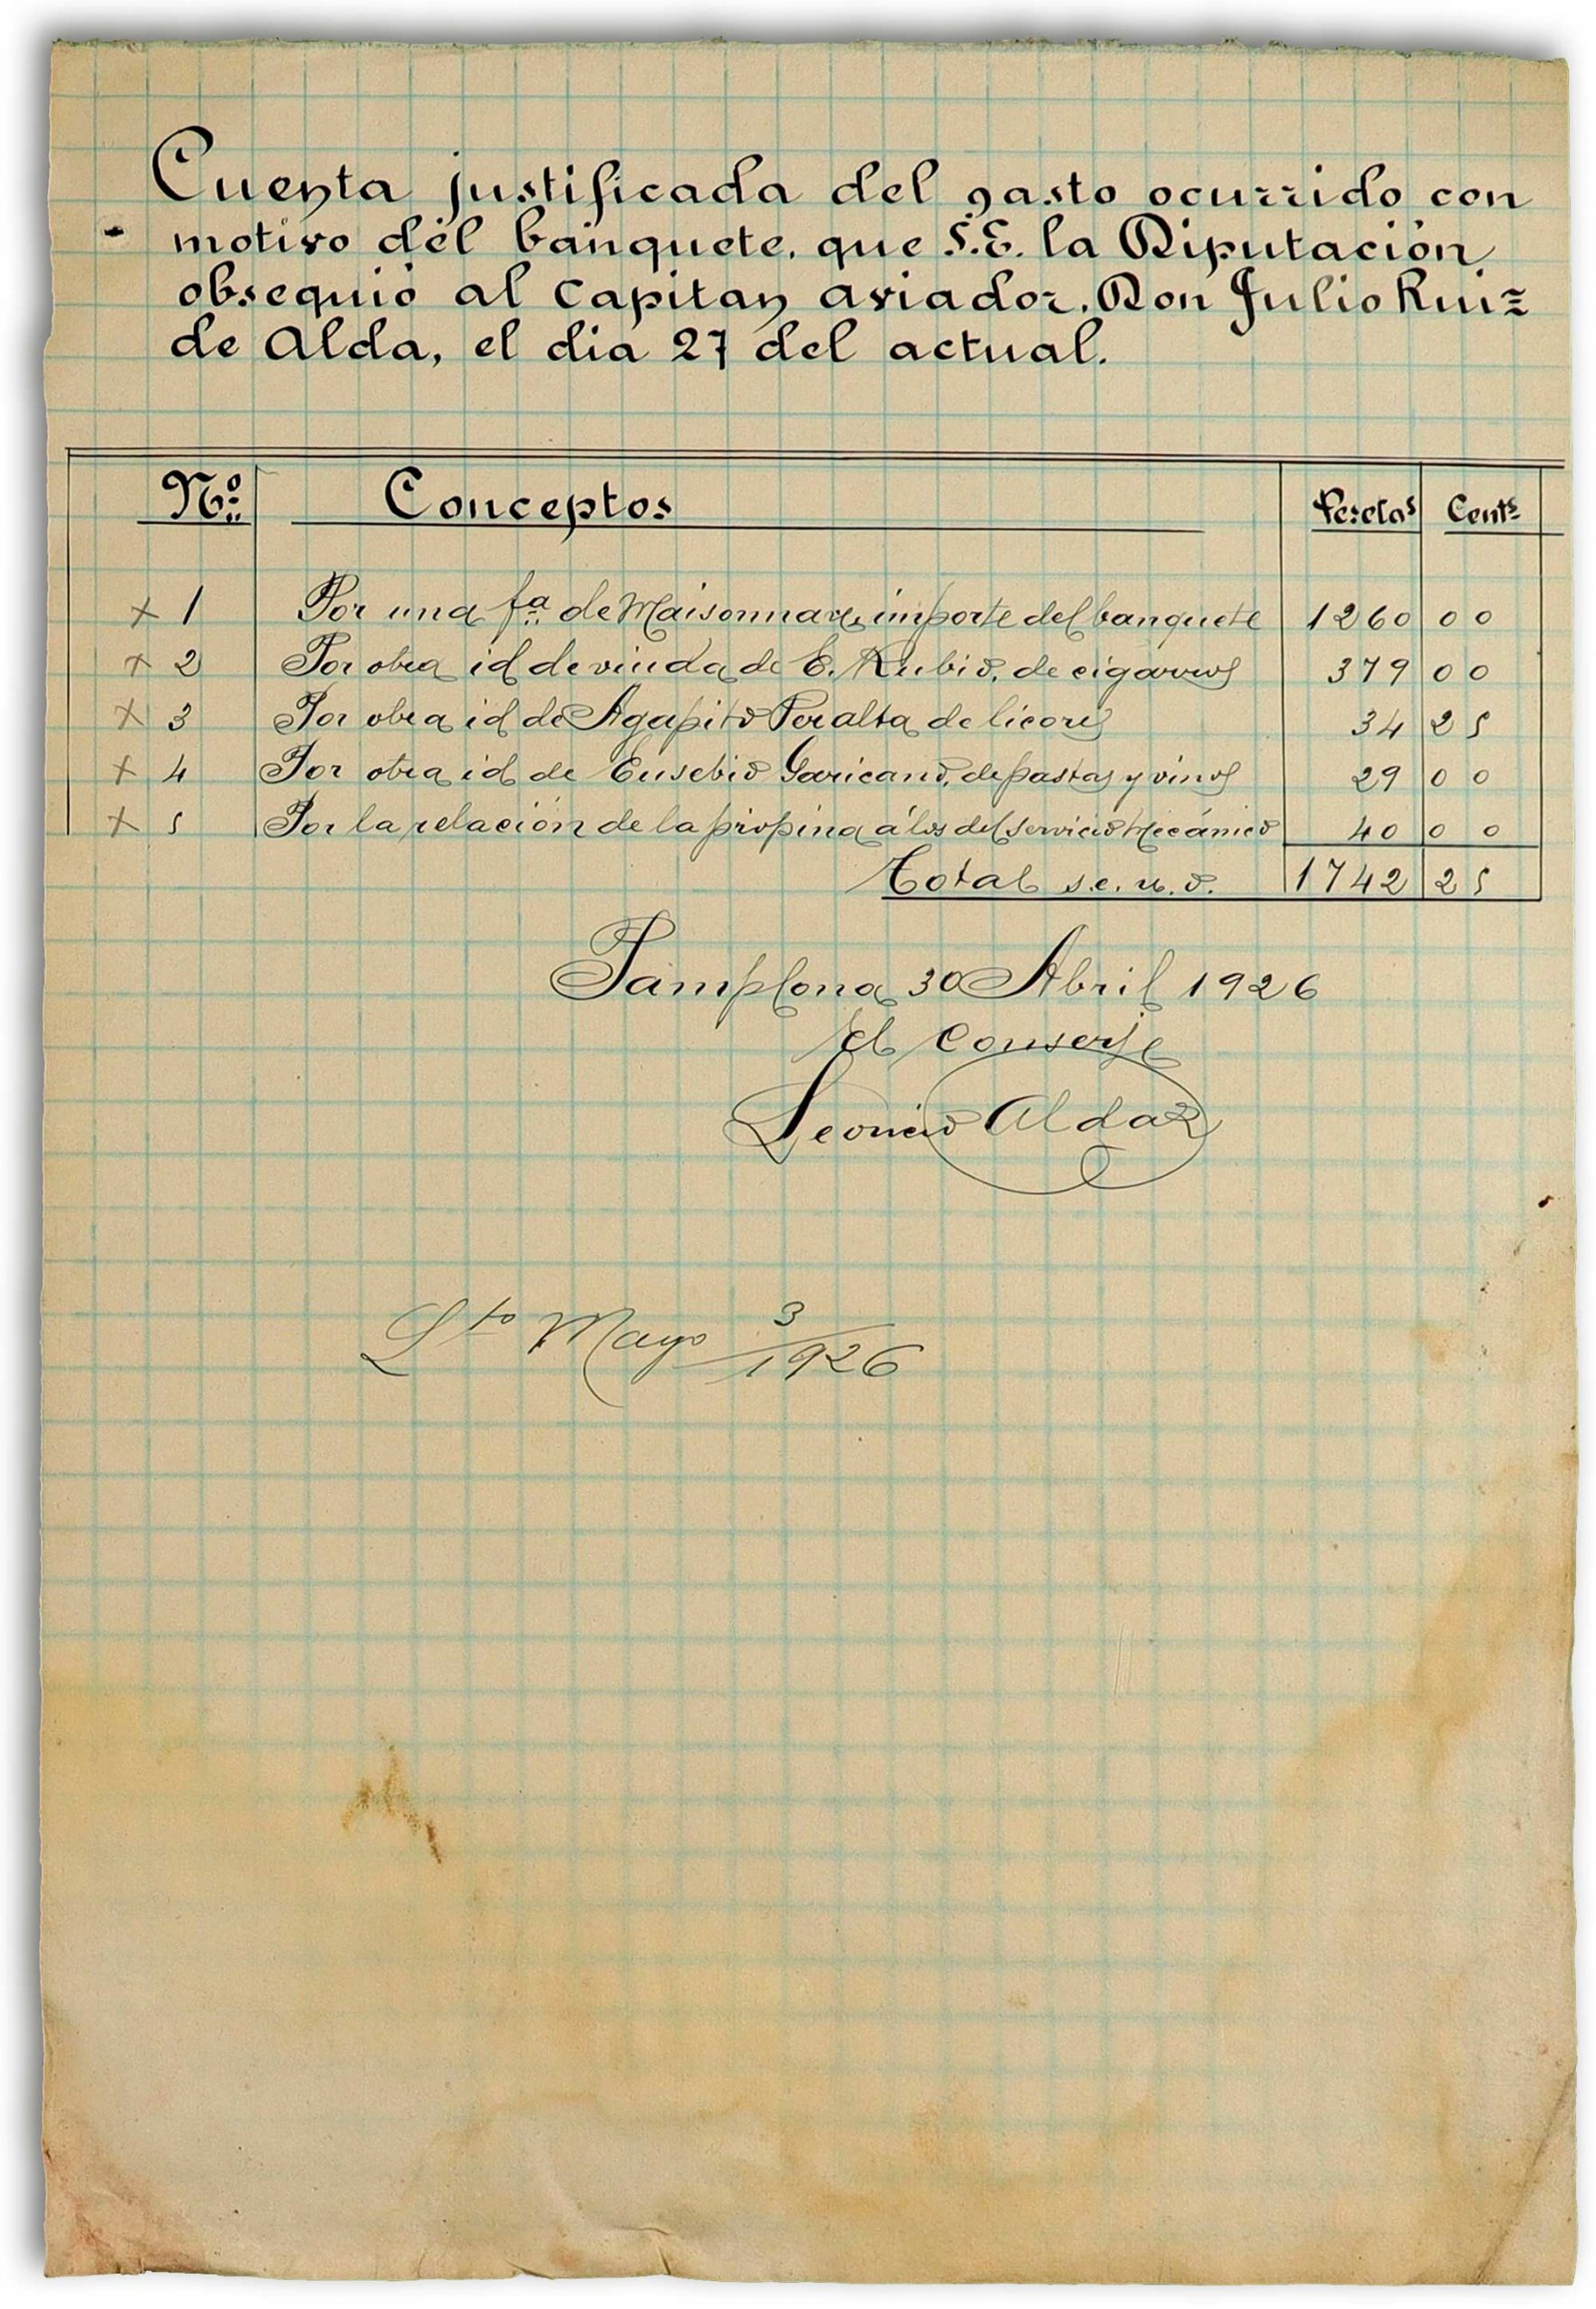 Cuenta justificada del gasto ocurrido con
motivo del banquete, que S.E. la Diputación
obsequió al Capitan aviador, Don Julio Ruiz
de Alda, el dia 27 del actual.
Nº Conceptos Pesetas Cents
x 1 Por una fª de Maisonnave, importe del banquete 1260 00
x 2 Por otra id de viuda de E. Rubio, de cigarros 379 00
x 3 Por otra id de Agapito Peralta de licores 34 25
x 4 Por otra id de Eusebio Garicano, de pastas y vinos 29 00
x 5 Por la relación de la propina á los del servicio Mecánico 40 00
Total s.e.u.o. 1742 25
Pamplona 30 Abril 1926
El Conserje
Leoncio Aldaz
Lto Mayo 3/1926